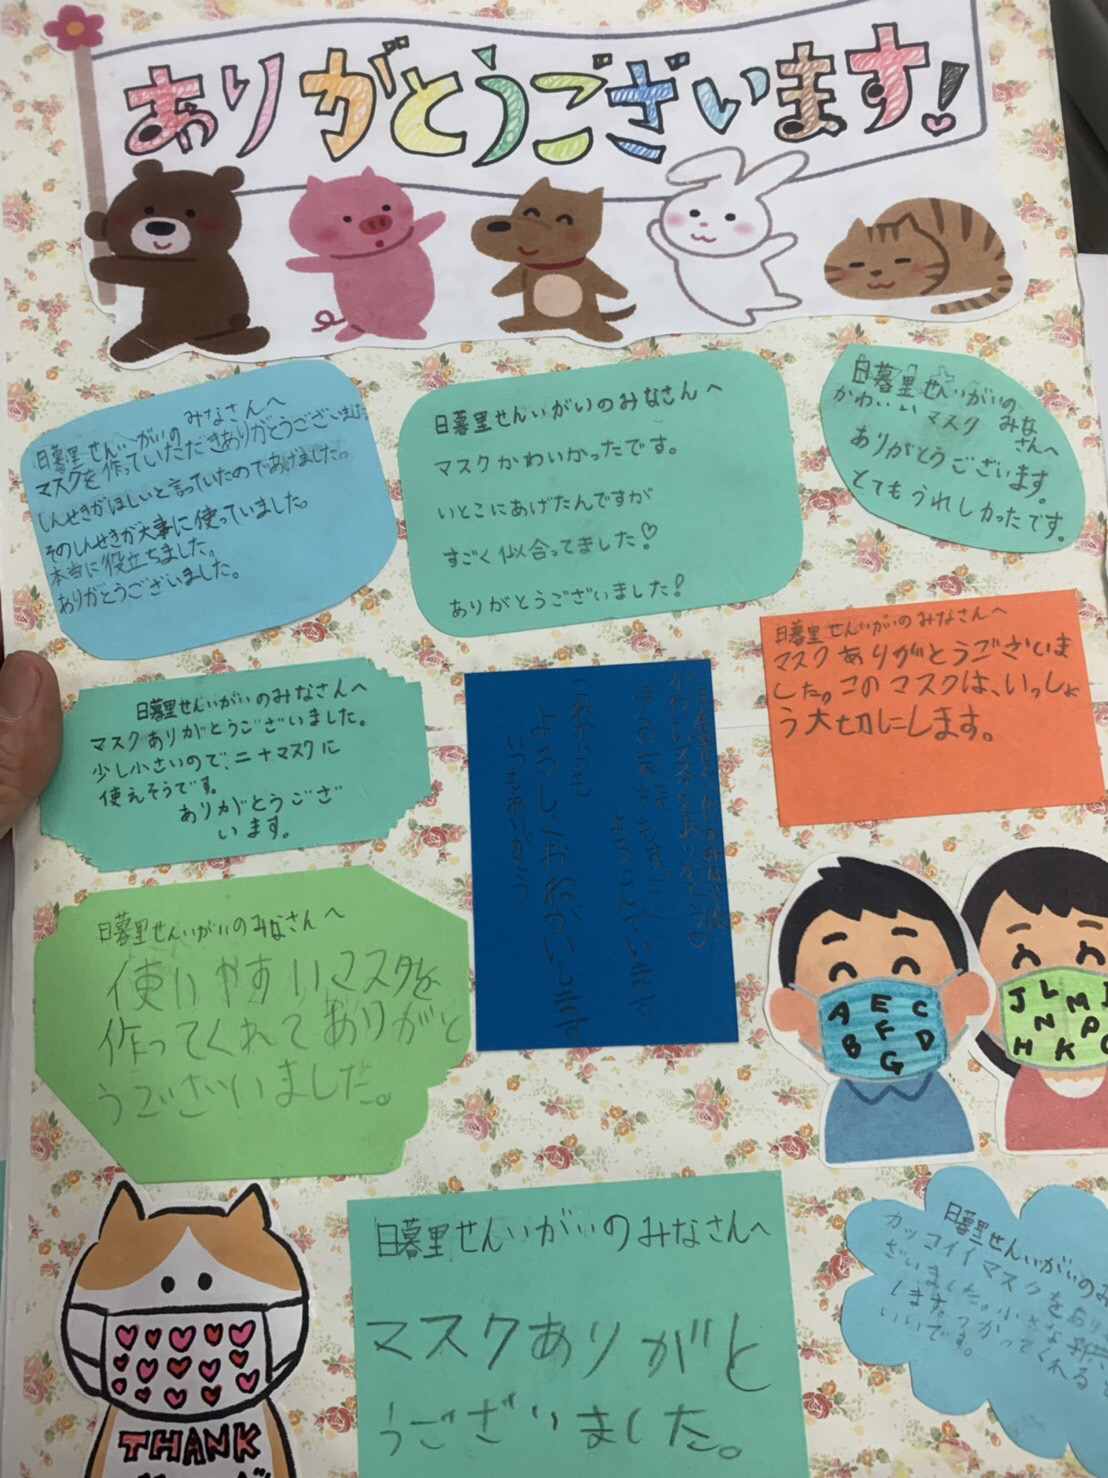 ありがとうございます!
日暮里せんいがいのみなさんへ
マスクを作っていただきありがとうございました
しんせきがほしいと言っていたのであげました。
そのしんせきが大事に使っていました。
本当に役立ちました。
ありがとうございました。
日暮里せんいがいのみなさんへ
マスクかわいかったです。
いとこにあげたんですが
すごく似合ってました!♡
ありがとうございました!
日暮里せんいがいの
みなさんへ
かわいいマスク
ありがとうございます。
とてもうれしかったです。
日暮里せんいがいのみなさんへ
マスクありがとうございました。
少し小さいので、ニ十マスクに
使えそうです。
ありがとうござ
います。
かわいいマスクをありがとう
よろこんでいます。
これからも
よろしくおねがいします
いつもありがとう
日暮里せんいがいのみなさんへ
マスクありがとうございま
した。このマスクは、いっしょ
う大切にします。
日暮里せんいがいのみなさんへ
使いやすいマスクを
作ってくれてありがと
うございました。
A E C
F
B G D
J L M
N P
H K
日暮里せんいがいのみなさんへ
マスクありがと
うございました。
日暮里せんいがいのみ
カッコイイマスクをあり
ざいました。小さな子供
します。つかってくれると
いいです。
THANK